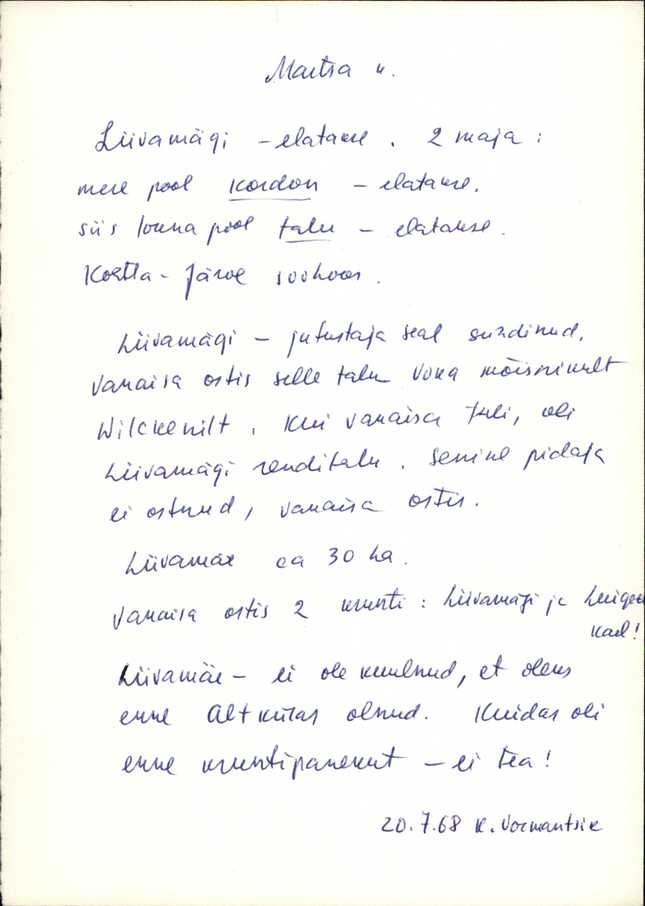 Martsa k.
Liivamägi – elatakse. 2 maja:
mere pool kordon – elatakse.
siis lõuna pool talu – elatakse.
Kohtla-Järve sovhoos.
Liivamägi – jutustaja seal sündinud,
vanaisa ostis selle talu Voka mõisnikult
Wilckenilt. Kui vanaisa tuli, oli
Liivamägi renditalu. Senine pidaja
ei ostnud, vanaisa ostis.
Liivamäe ca 30 ha.
Vanaisa ostis 2 krunti: Liivamägi ja
Liivamäe – ei ole kuulnud, et oleks
enne Altkülas olnud. Kuidas oli
enne kruntipanekut – ei tea!
20.7.68 K.